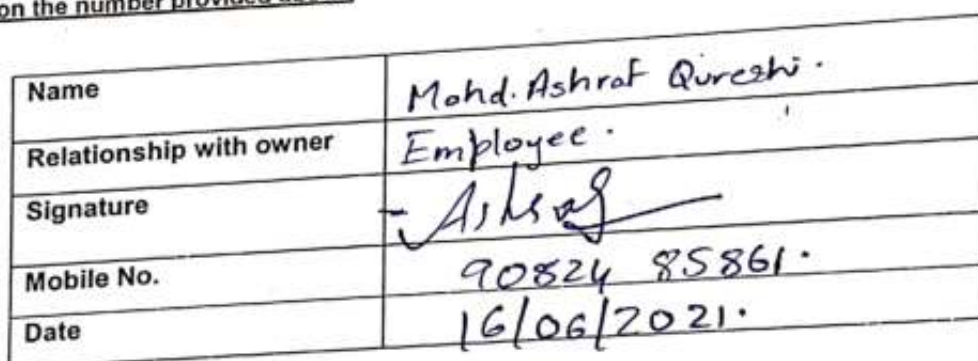 on the number provided above.
Name Mohd. Ashraf Qureshi.
Relationship with owner Employee.
Signature Ashraf
Mobile No. 90824 85861.
Date 16/06/2021.